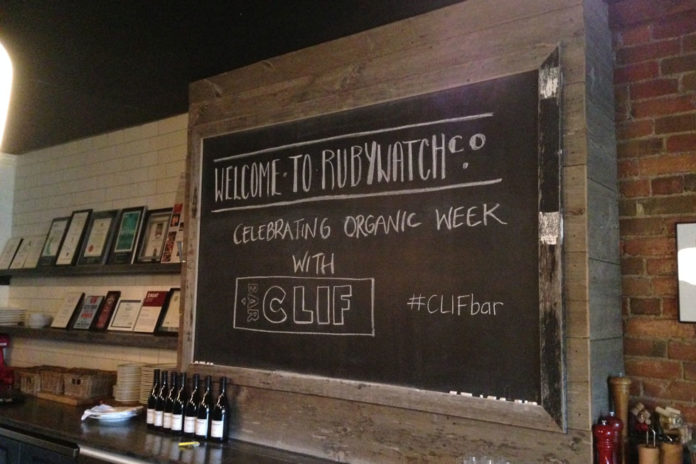 WELCOME·TO RUBYWATCHCO.
CELEBRATING ORGANIC WEEK
WITH
BAR CLIF
#CLIFbar